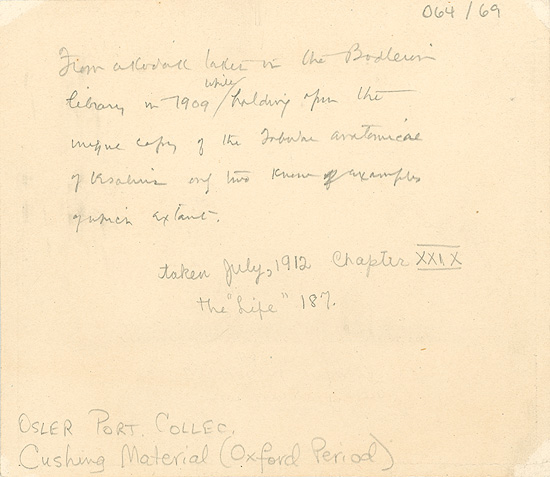 064/69
From a Kodak taken in the Bodleian
library in 1909 while holding open the
unique copy of the Tabulae anatomicae
of Vesalius only two known examples
of which extant.
taken July, 1912 Chapter XXIX
the "Life" 187.
OSLER PORT. COLLEC.
Cushing Material (Oxford Period)